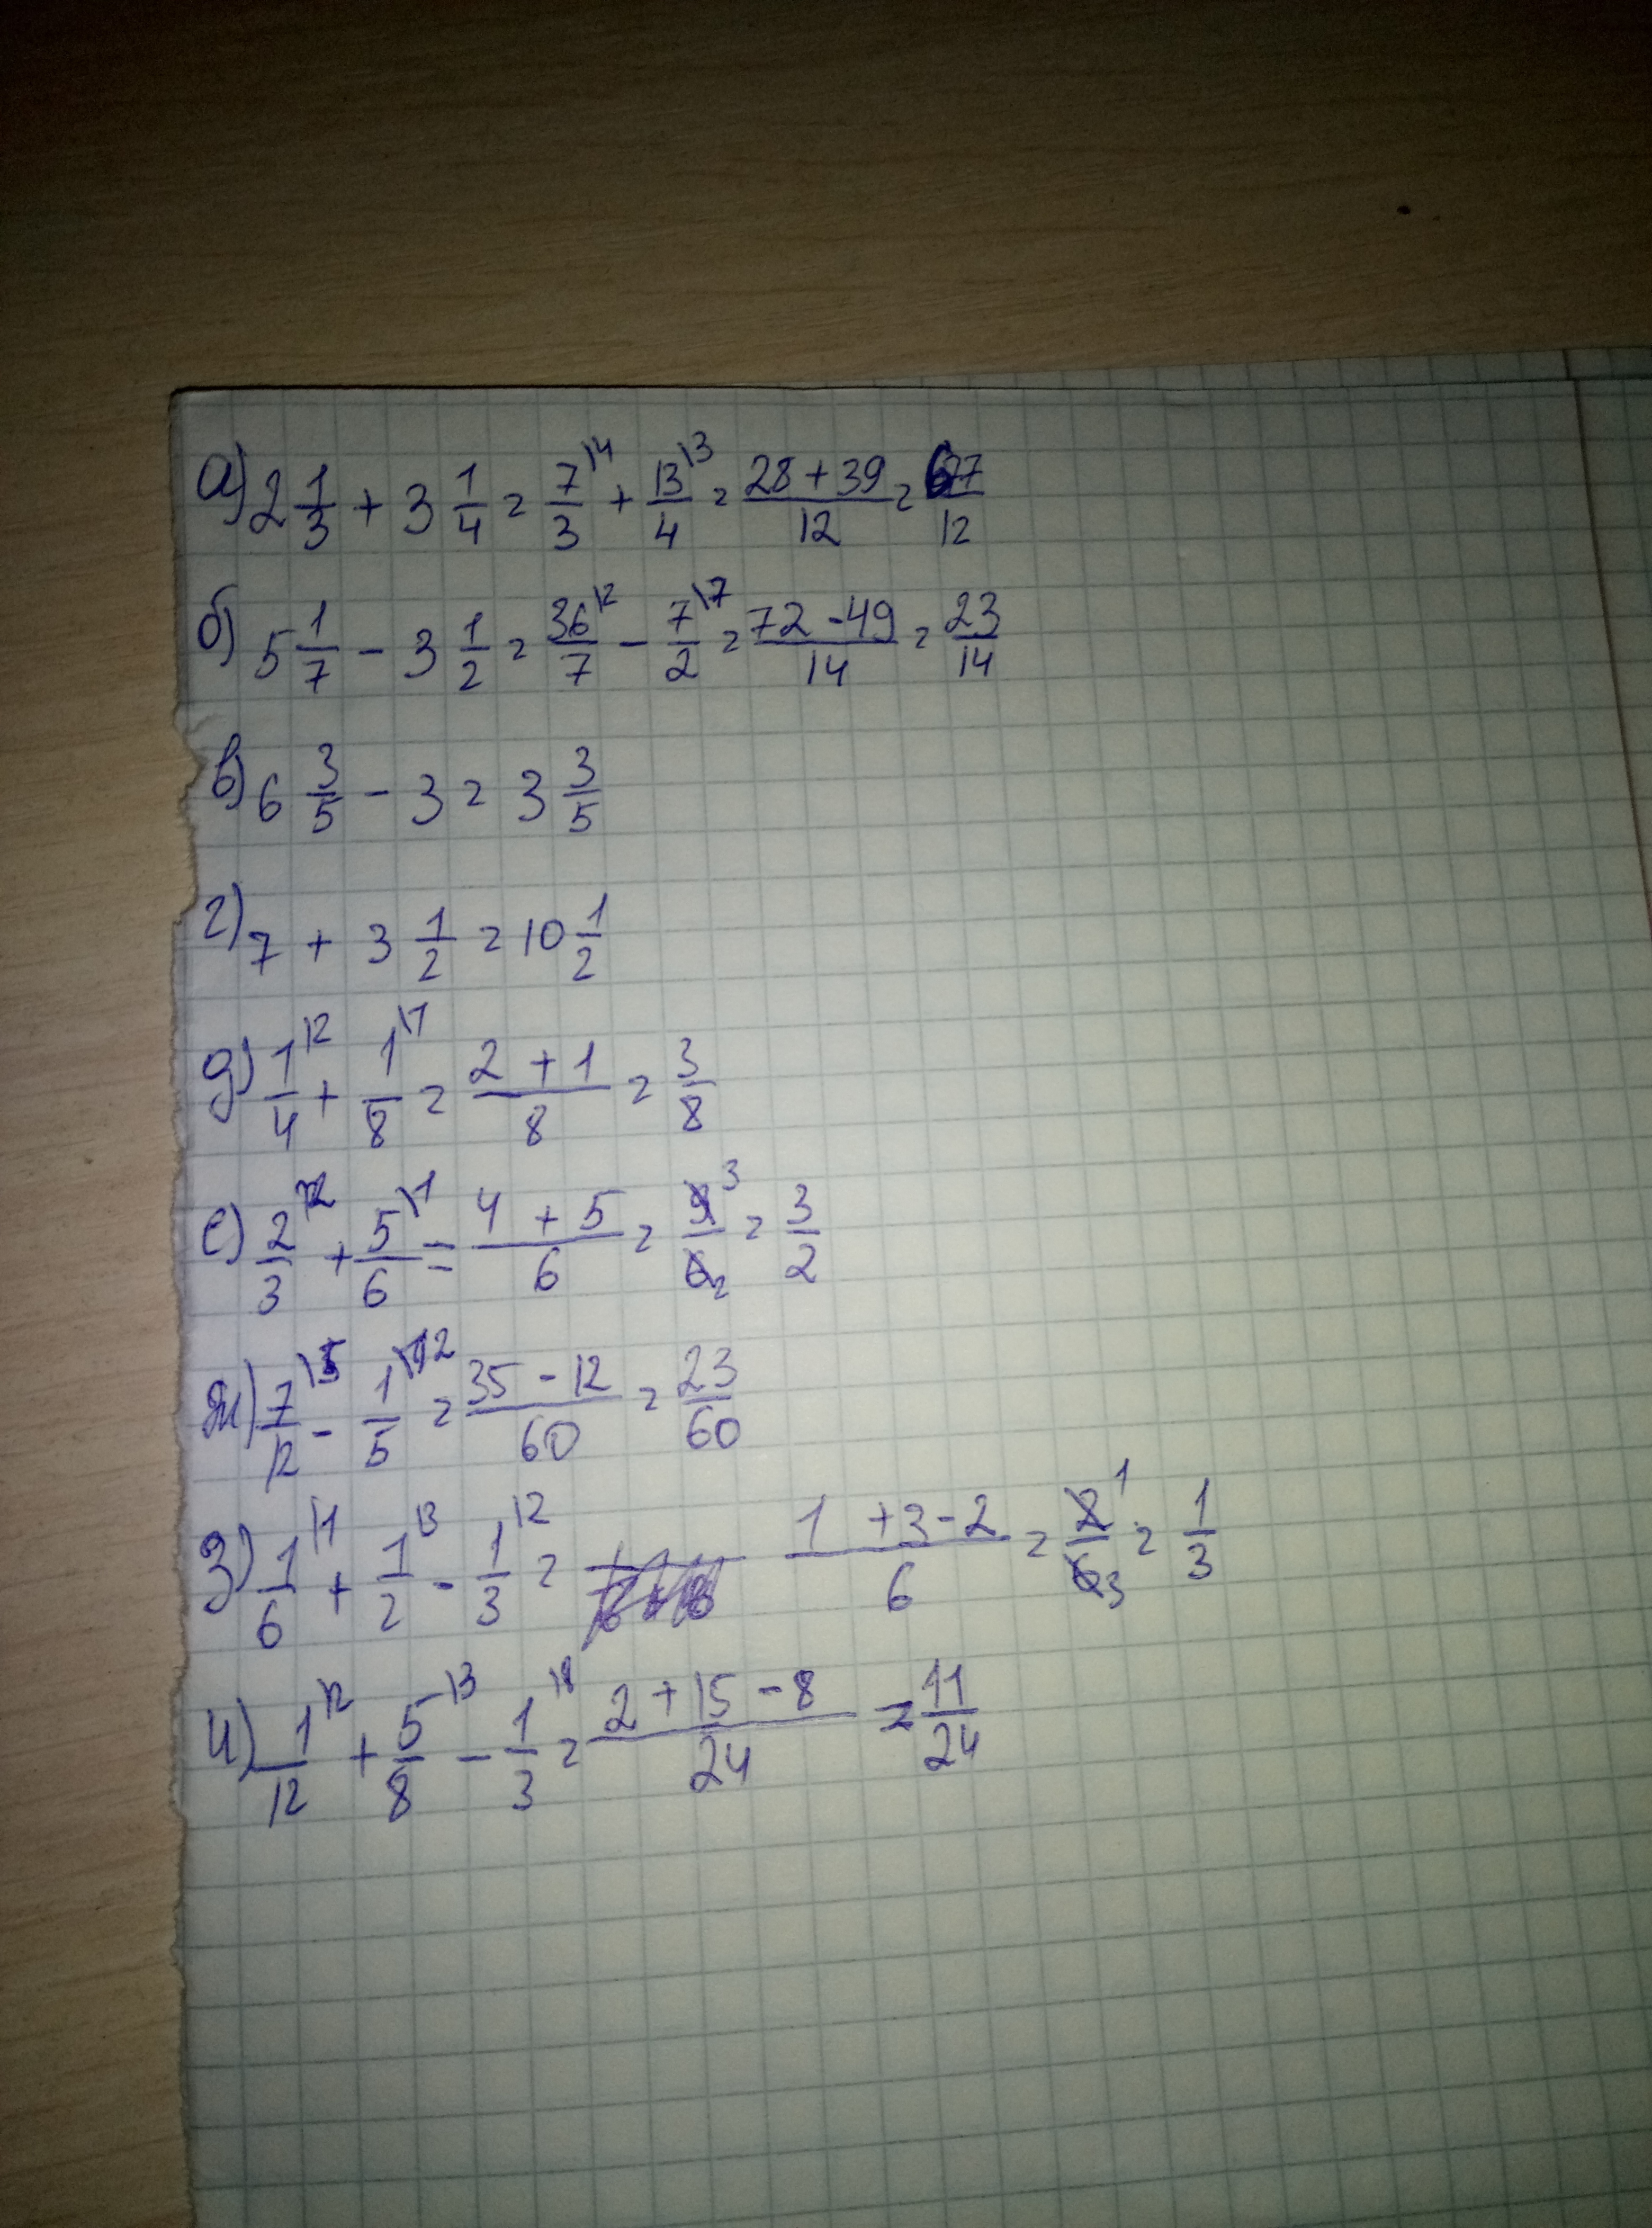 а) 2 1/3 + 3 1/4 = 7/3 \4 + 13/4 \3 = (28 + 39)/12 = 67/12
б) 5 1/7 - 3 1/2 = 36/7 \2 - 7/2 \7 = (72 - 49)/14 = 23/14
в) 6 3/5 - 3 = 3 3/5
г) 7 + 3 1/2 = 10 1/2
д) 1/4 \2 + 1/8 \1 = (2 + 1)/8 = 3/8
е) 2/3 \2 + 5/6 \1 = (4 + 5)/6 = 9/6 3 2 = 3/2
ж) 7/12 \5 - 1/5 \12 = (35 - 12)/60 = 23/60
з) 1/6 \1 + 1/2 \3 - 1/3 \2 = (1 + 3 - 2)/6 = 2/6 1 3 = 1/3
и) 1/12 \2 + 5/8 \3 - 1/3 \8 = (2 + 15 - 8)/24 = 11/24